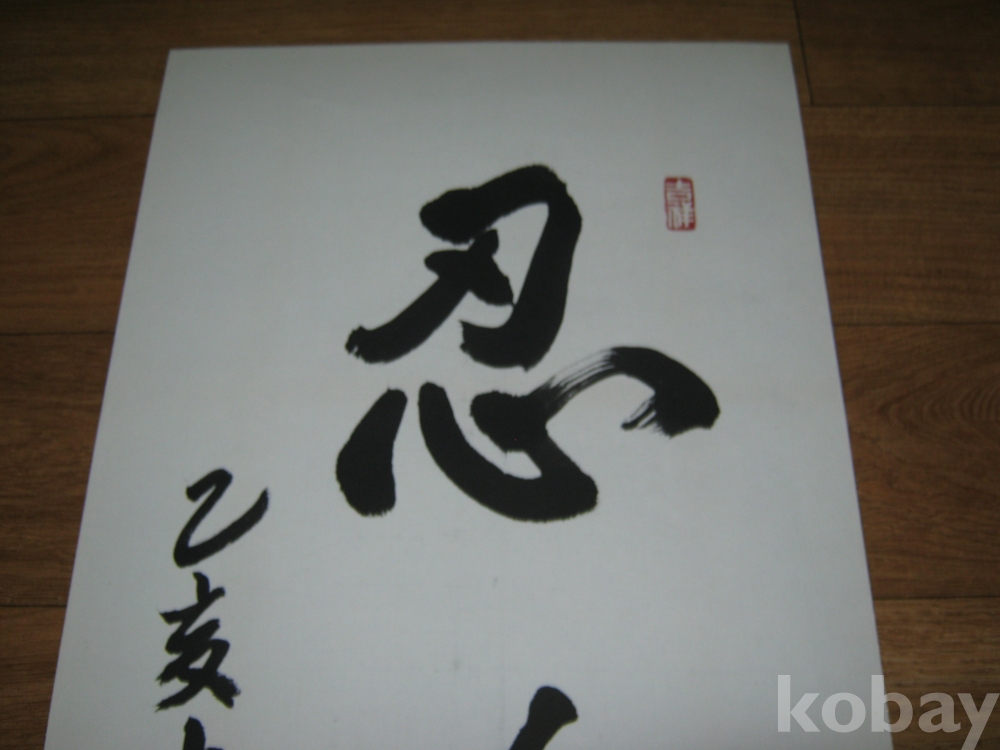 忍
乙亥
kobay